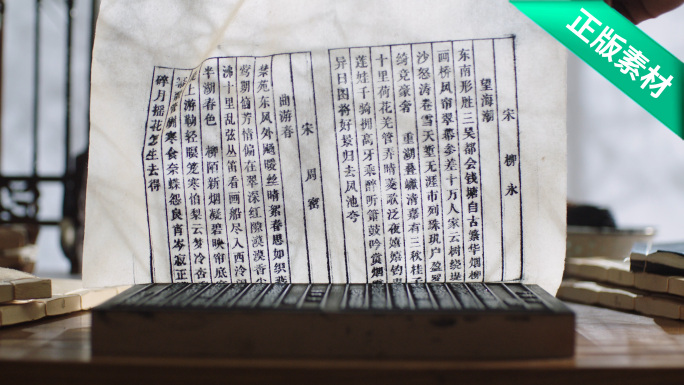 正版素材
宋 柳永
望海潮
东南形胜三吴都会钱塘自古繁华烟柳
画桥风帘翠幕参差十万人家云树绕堤
沙怒涛卷雪天堑无涯市列珠玑户盈
绮竞豪奢 重湖叠巘清嘉有三秋桂子
十里荷花羌管弄晴菱歌泛夜嬉嬉钓
莲娃千骑拥高牙乘醉听箫鼓吟赏烟
异日图将好景归去凤池夸
宋 周密
曲游春
禁苑东风外飏暖丝晴絮春思如织
莺期恼芳情偏在翠深红隙漠漠香
沸十里乱弦丛笛看画船尽入西泠
半湖春色 柳陌新烟凝碧映帘底
上游勒轻暝笼寒怕梨云梦冷杏香
寒食奈蝶怨良宵岑寂正
碎月摇花怎生去得